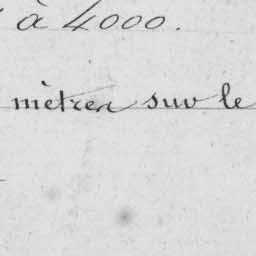 à 4000.
mètres sur le